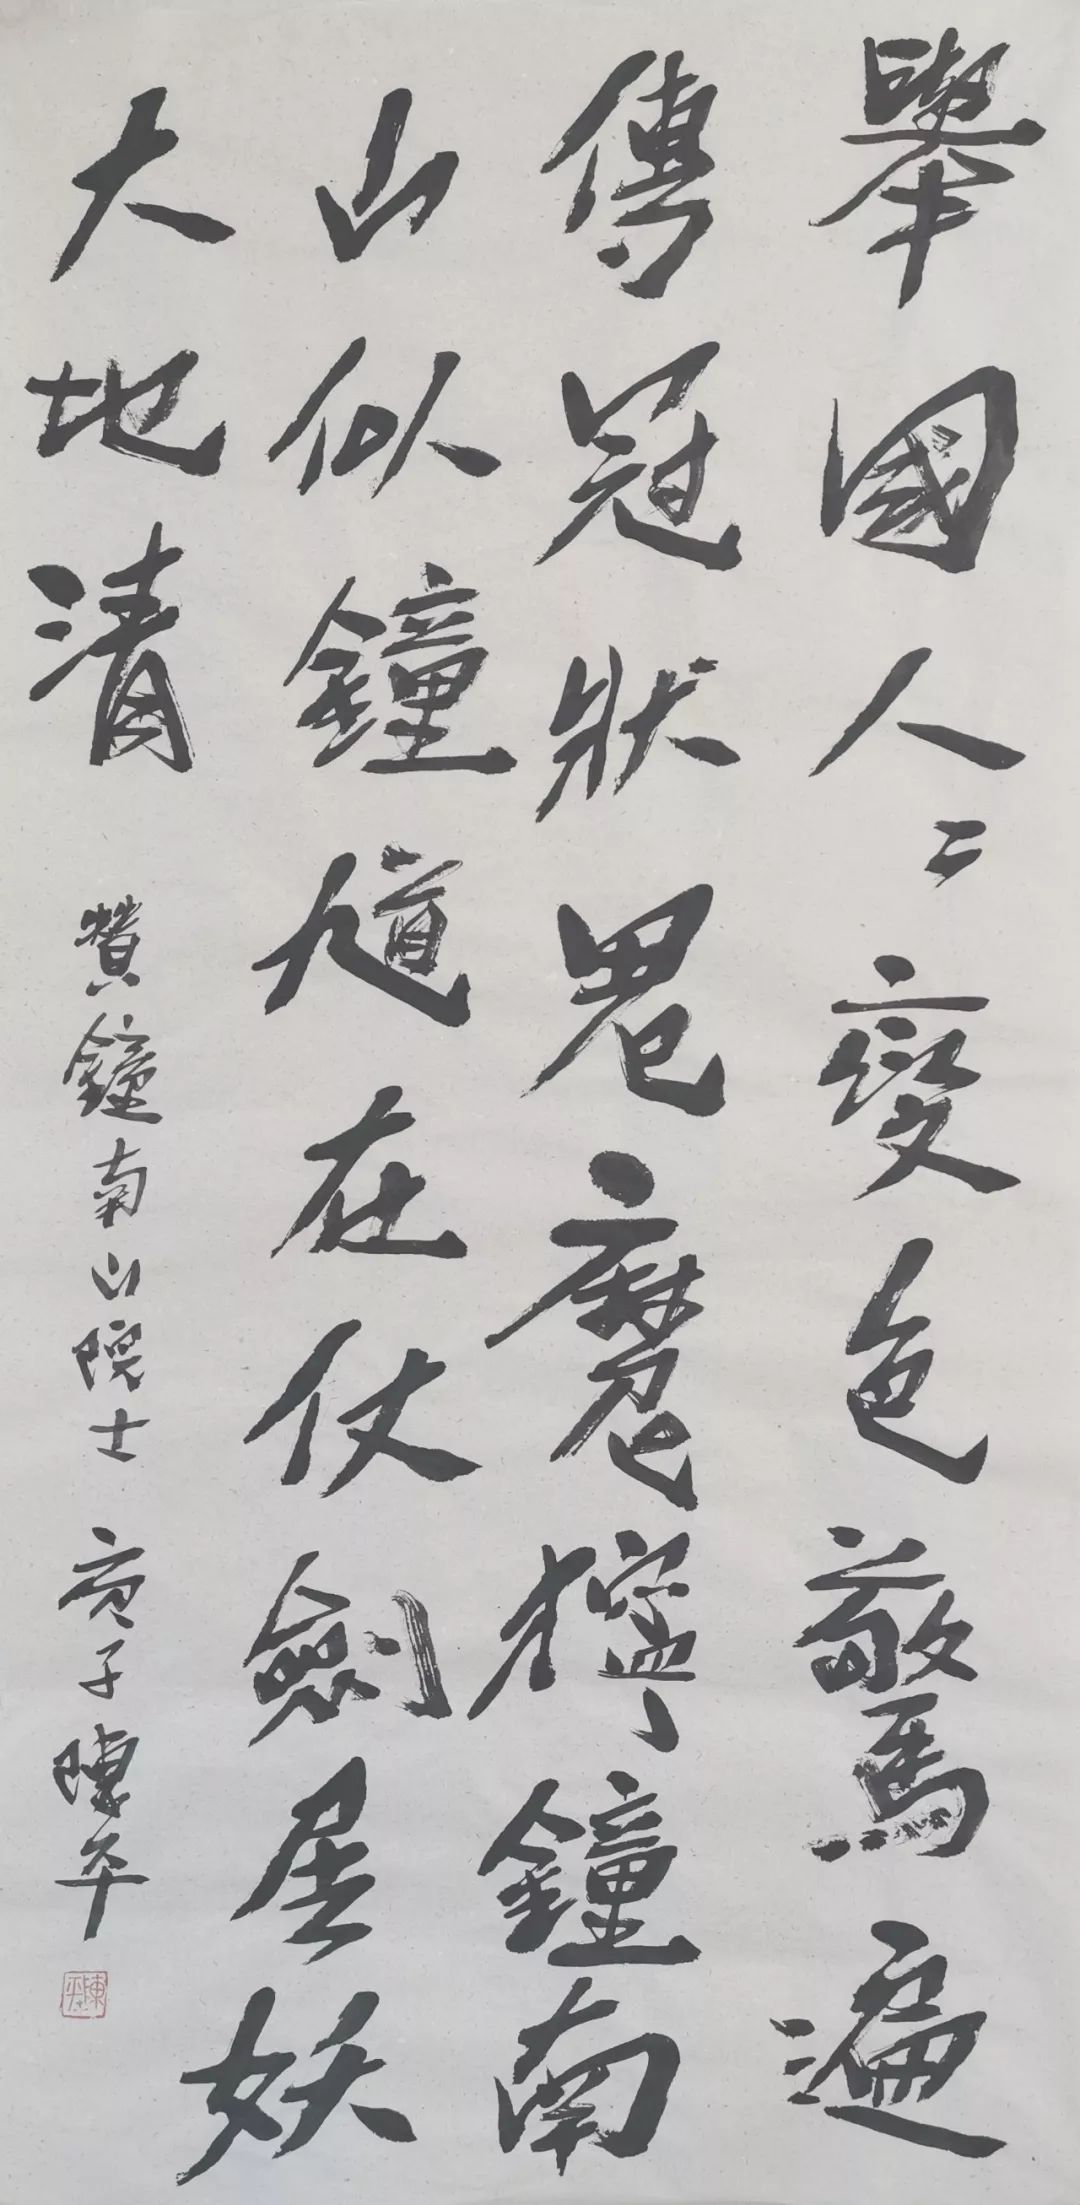 舉國人〻變色驚遍
傳冠狀鬼魔獰鐘南
山似鐘馗在仗劍屠妖
大地清
贊鐘南山院士 庚子陳平
陳平